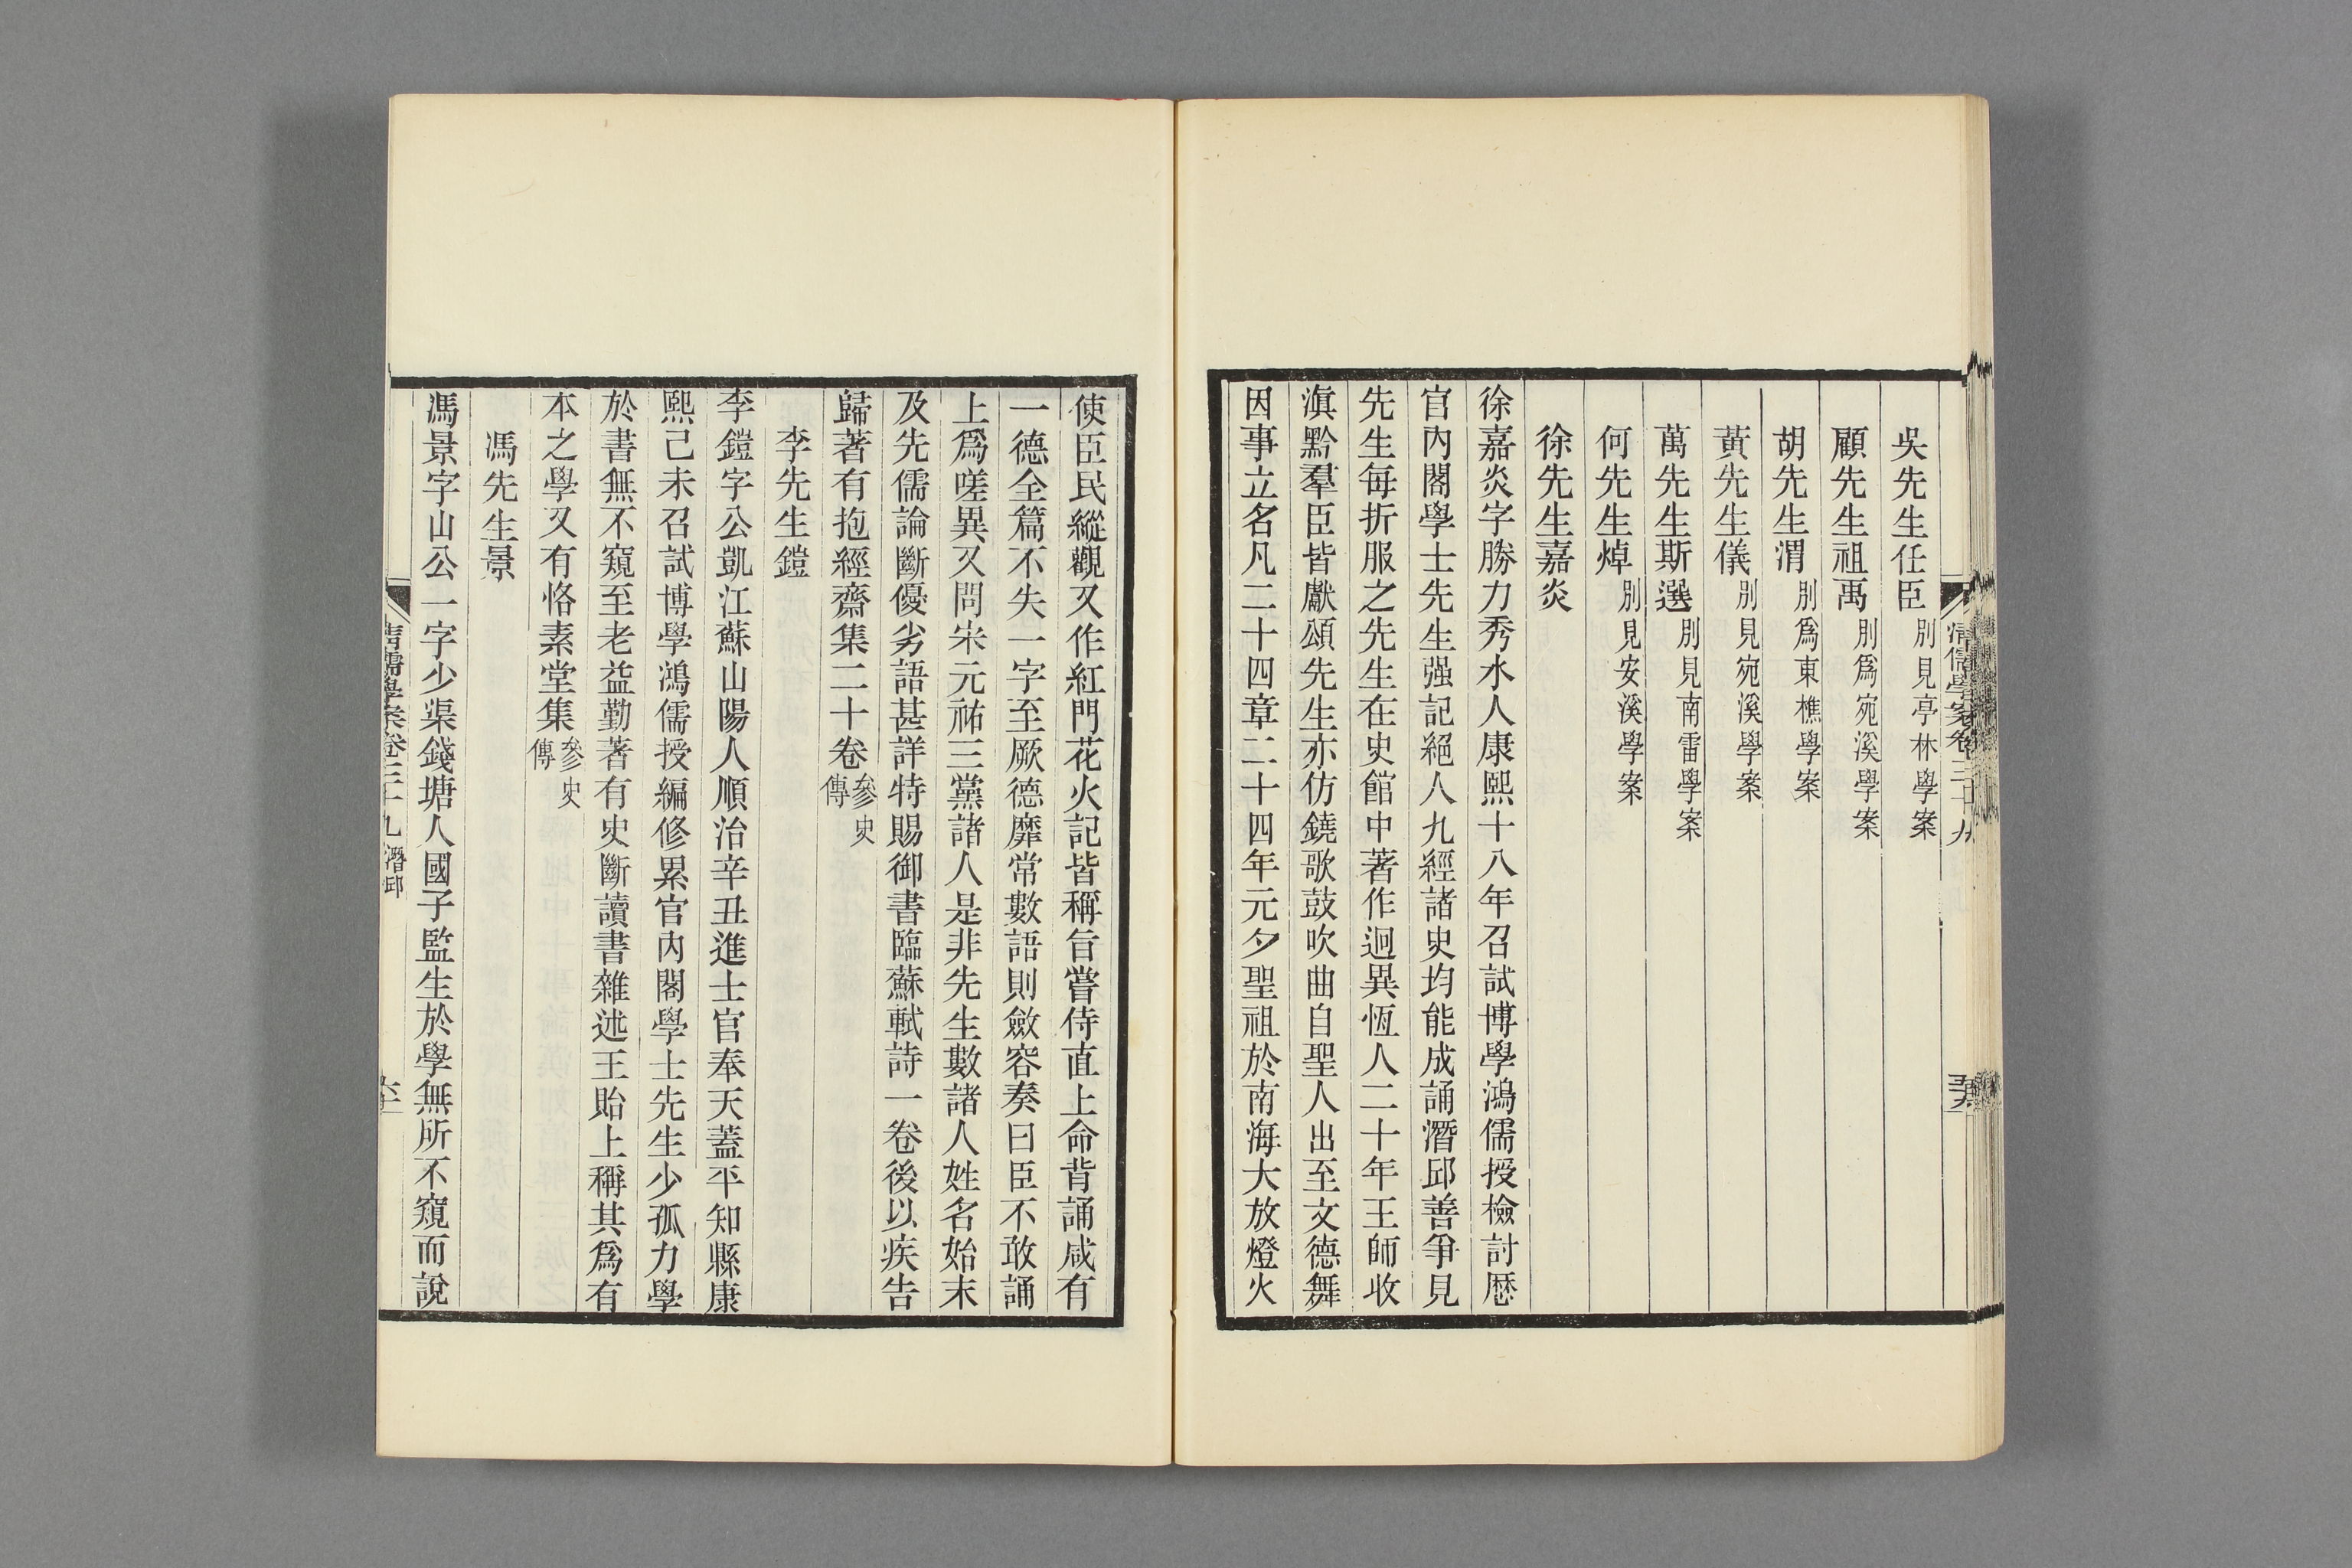 清儒學案卷三十九
吳先生任臣 別見亭林學案
顧先生祖禹 別爲宛溪學案
胡先生渭 別爲東樵學案
黃先生儀 別見宛溪學案
萬先生斯選 別見南雷學案
何先生焯 別見安溪學案
徐先生嘉炎
徐嘉炎字勝力秀水人康熙十八年召試博學鴻儒授檢討歷
官內閣學士先生强記絕人九經諸史均能成誦潛邱善爭見
先生每折服之先生在史館中著作迥異恆人二十年王師收
滇黔羣臣皆獻頌先生亦仿鐃歌鼓吹曲自聖人出至文德舞
因事立名凡二十四章二十四年元夕聖祖於南海大放燈火
使臣民縱觀又作紅門花火記皆稱旨嘗侍直上命背誦咸有
一德全篇不失一字至厥德靡常數語則斂容奏曰臣不敢誦
上爲嗟異又問宋元祐三黨諸人是非先生數諸人姓名始末
及先儒論斷優劣語甚詳特賜御書臨蘇軾詩一卷後以疾告
歸著有抱經齋集二十卷 參史傳
李先生鎧
李鎧字公凱江蘇山陽人順治辛丑進士官奉天蓋平知縣康
熙己未召試博學鴻儒授編修累官內閣學士先生少孤力學
於書無不窺至老益勤著有史斷讀書雜述王貽上稱其爲有
本之學又有恪素堂集 參史傳
馮先生景
馮景字山公一字少渠錢塘人國子監生於學無所不窺而說
清儒學案卷三十九 潛邱